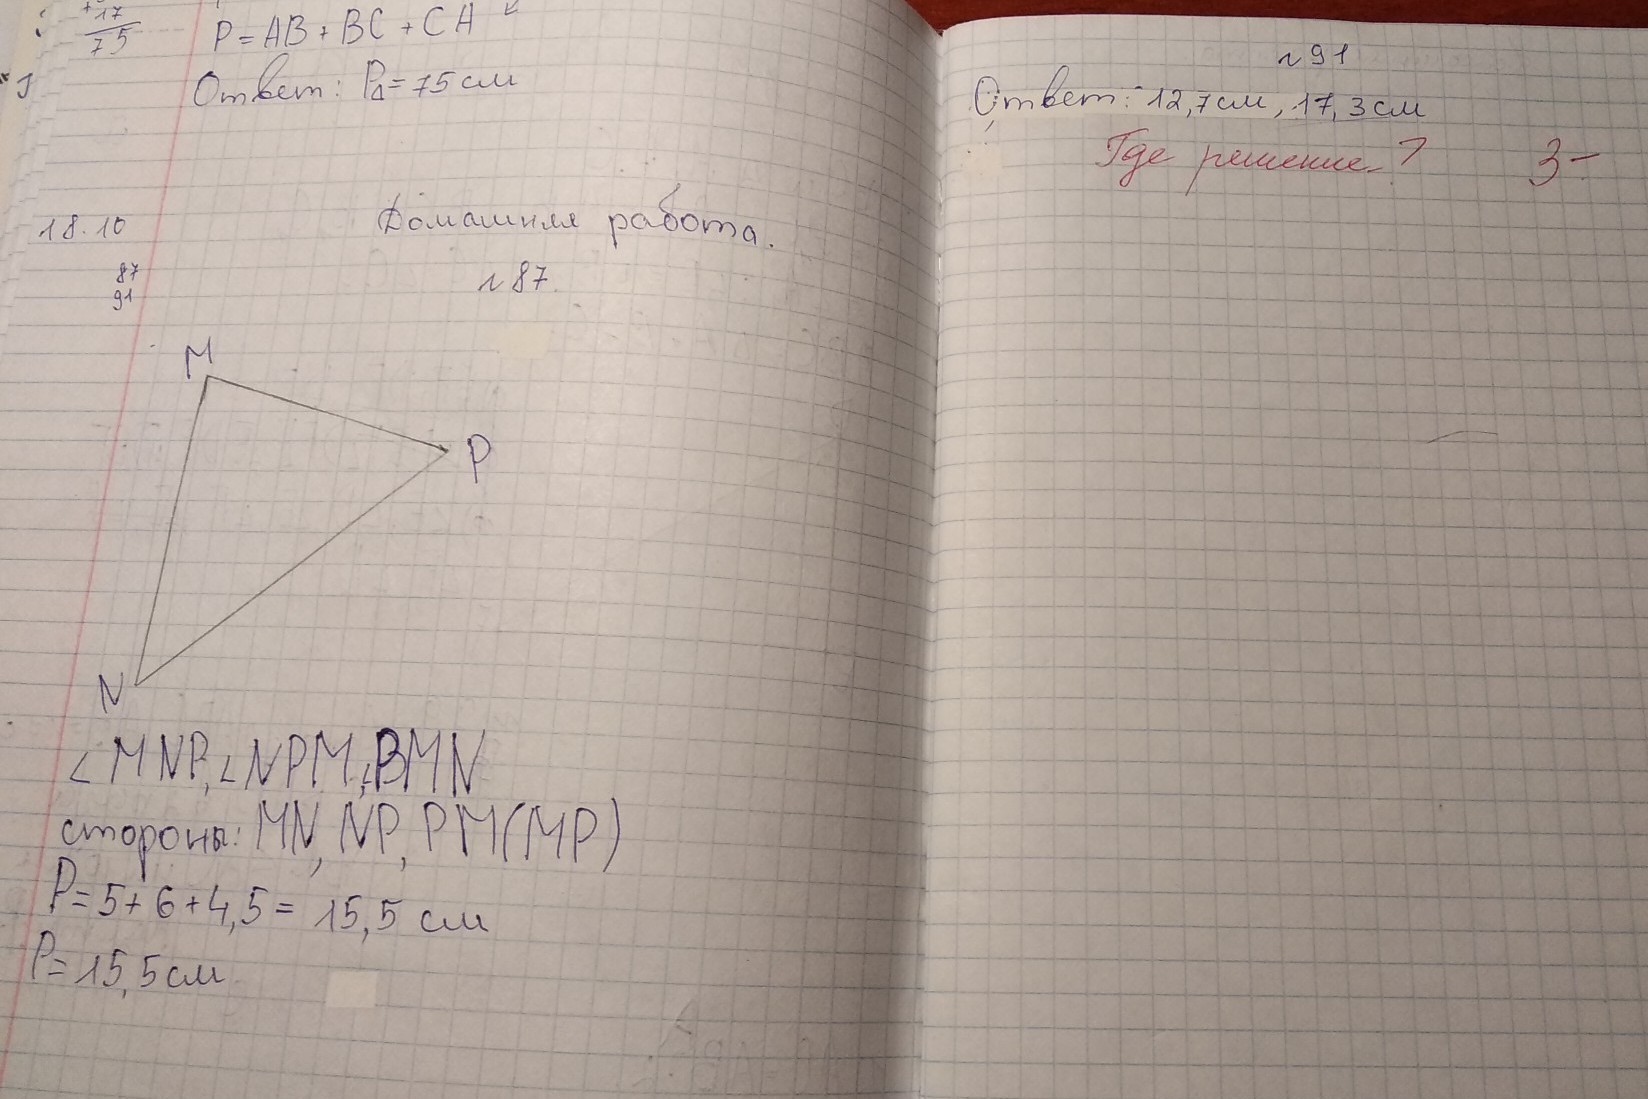 +17
75
P = AB + BC + CA
Ответ: P△ = 75 см
18.10
Домашняя работа.
87
91
№87.
M
P
N
∠MNP, ∠NPM, ∠BMN
стороны: MN, NP, PM(MP)
P = 5 + 6 + 4,5 = 15,5 см
P = 15,5 см
№91
Ответ: 12,7 см, 17,3 см
Где решение? 3-